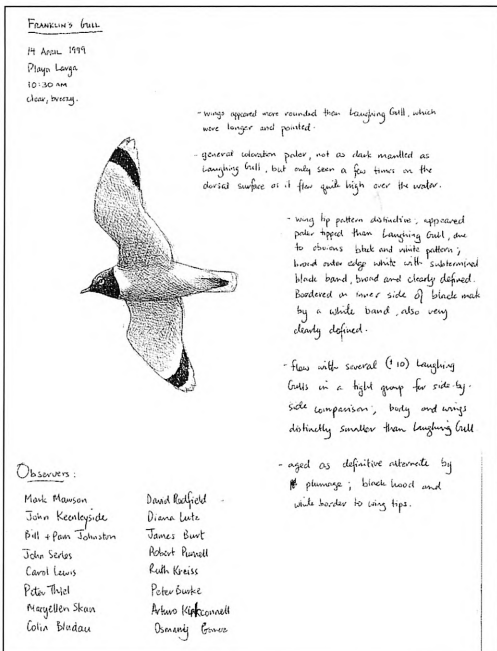 FRANKLIN'S GULL
14 APRIL 1999
Playa Larga
10:30 AM
clear, breezy.
- wings appeared more rounded than Laughing Gull, which
were longer and pointed.
- general coloration paler, not as dark mantled as
Laughing Gull, but only seen a few times on the
dorsal surface as it flew quite high over the water.
- wing tip pattern distinctive; appeared
paler tipped than Laughing Gull, due
to obvious black and white pattern;
broad outer edge white with subterminal
black band, broad and clearly defined.
Bordered on inner side of black mark
by a white band, also very
clearly defined.
- flew with several (10) Laughing
Gulls in a tight group for side-by-
side comparison; body and wings
distinctly smaller than Laughing Gull
- aged as definitive alternate by
plumage; black hood and
white border to wing tips.
Observers:
Mark Mawson
John Keenleyside
Bill + Pam Johnston
John Serles
Carol Lewis
Peter Thiel
Maryellen Skan
Colin Bladau
David Radfield
Diana Lutz
James Burt
Robert Purnell
Ruth Kreiss
Peter Burke
Arturo Kirkconnell
Osmany